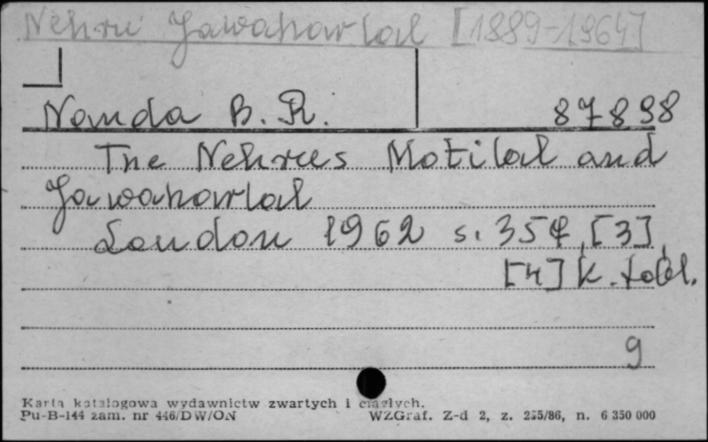 Nehru Jawaharlal [1889-1964]
Nanda B. R. 87898
The Nehrus Motilal and
Jawaharlal
London 1962 s. 357, [3],
[4] k. tabl.
9
Karta katalogowa wydawnictw zwartych i ciągłych.
Pu-B-144 zam. nr 446/DW/ON WZGraf. Z-d 2, z. 255/86, n. 6 350 000